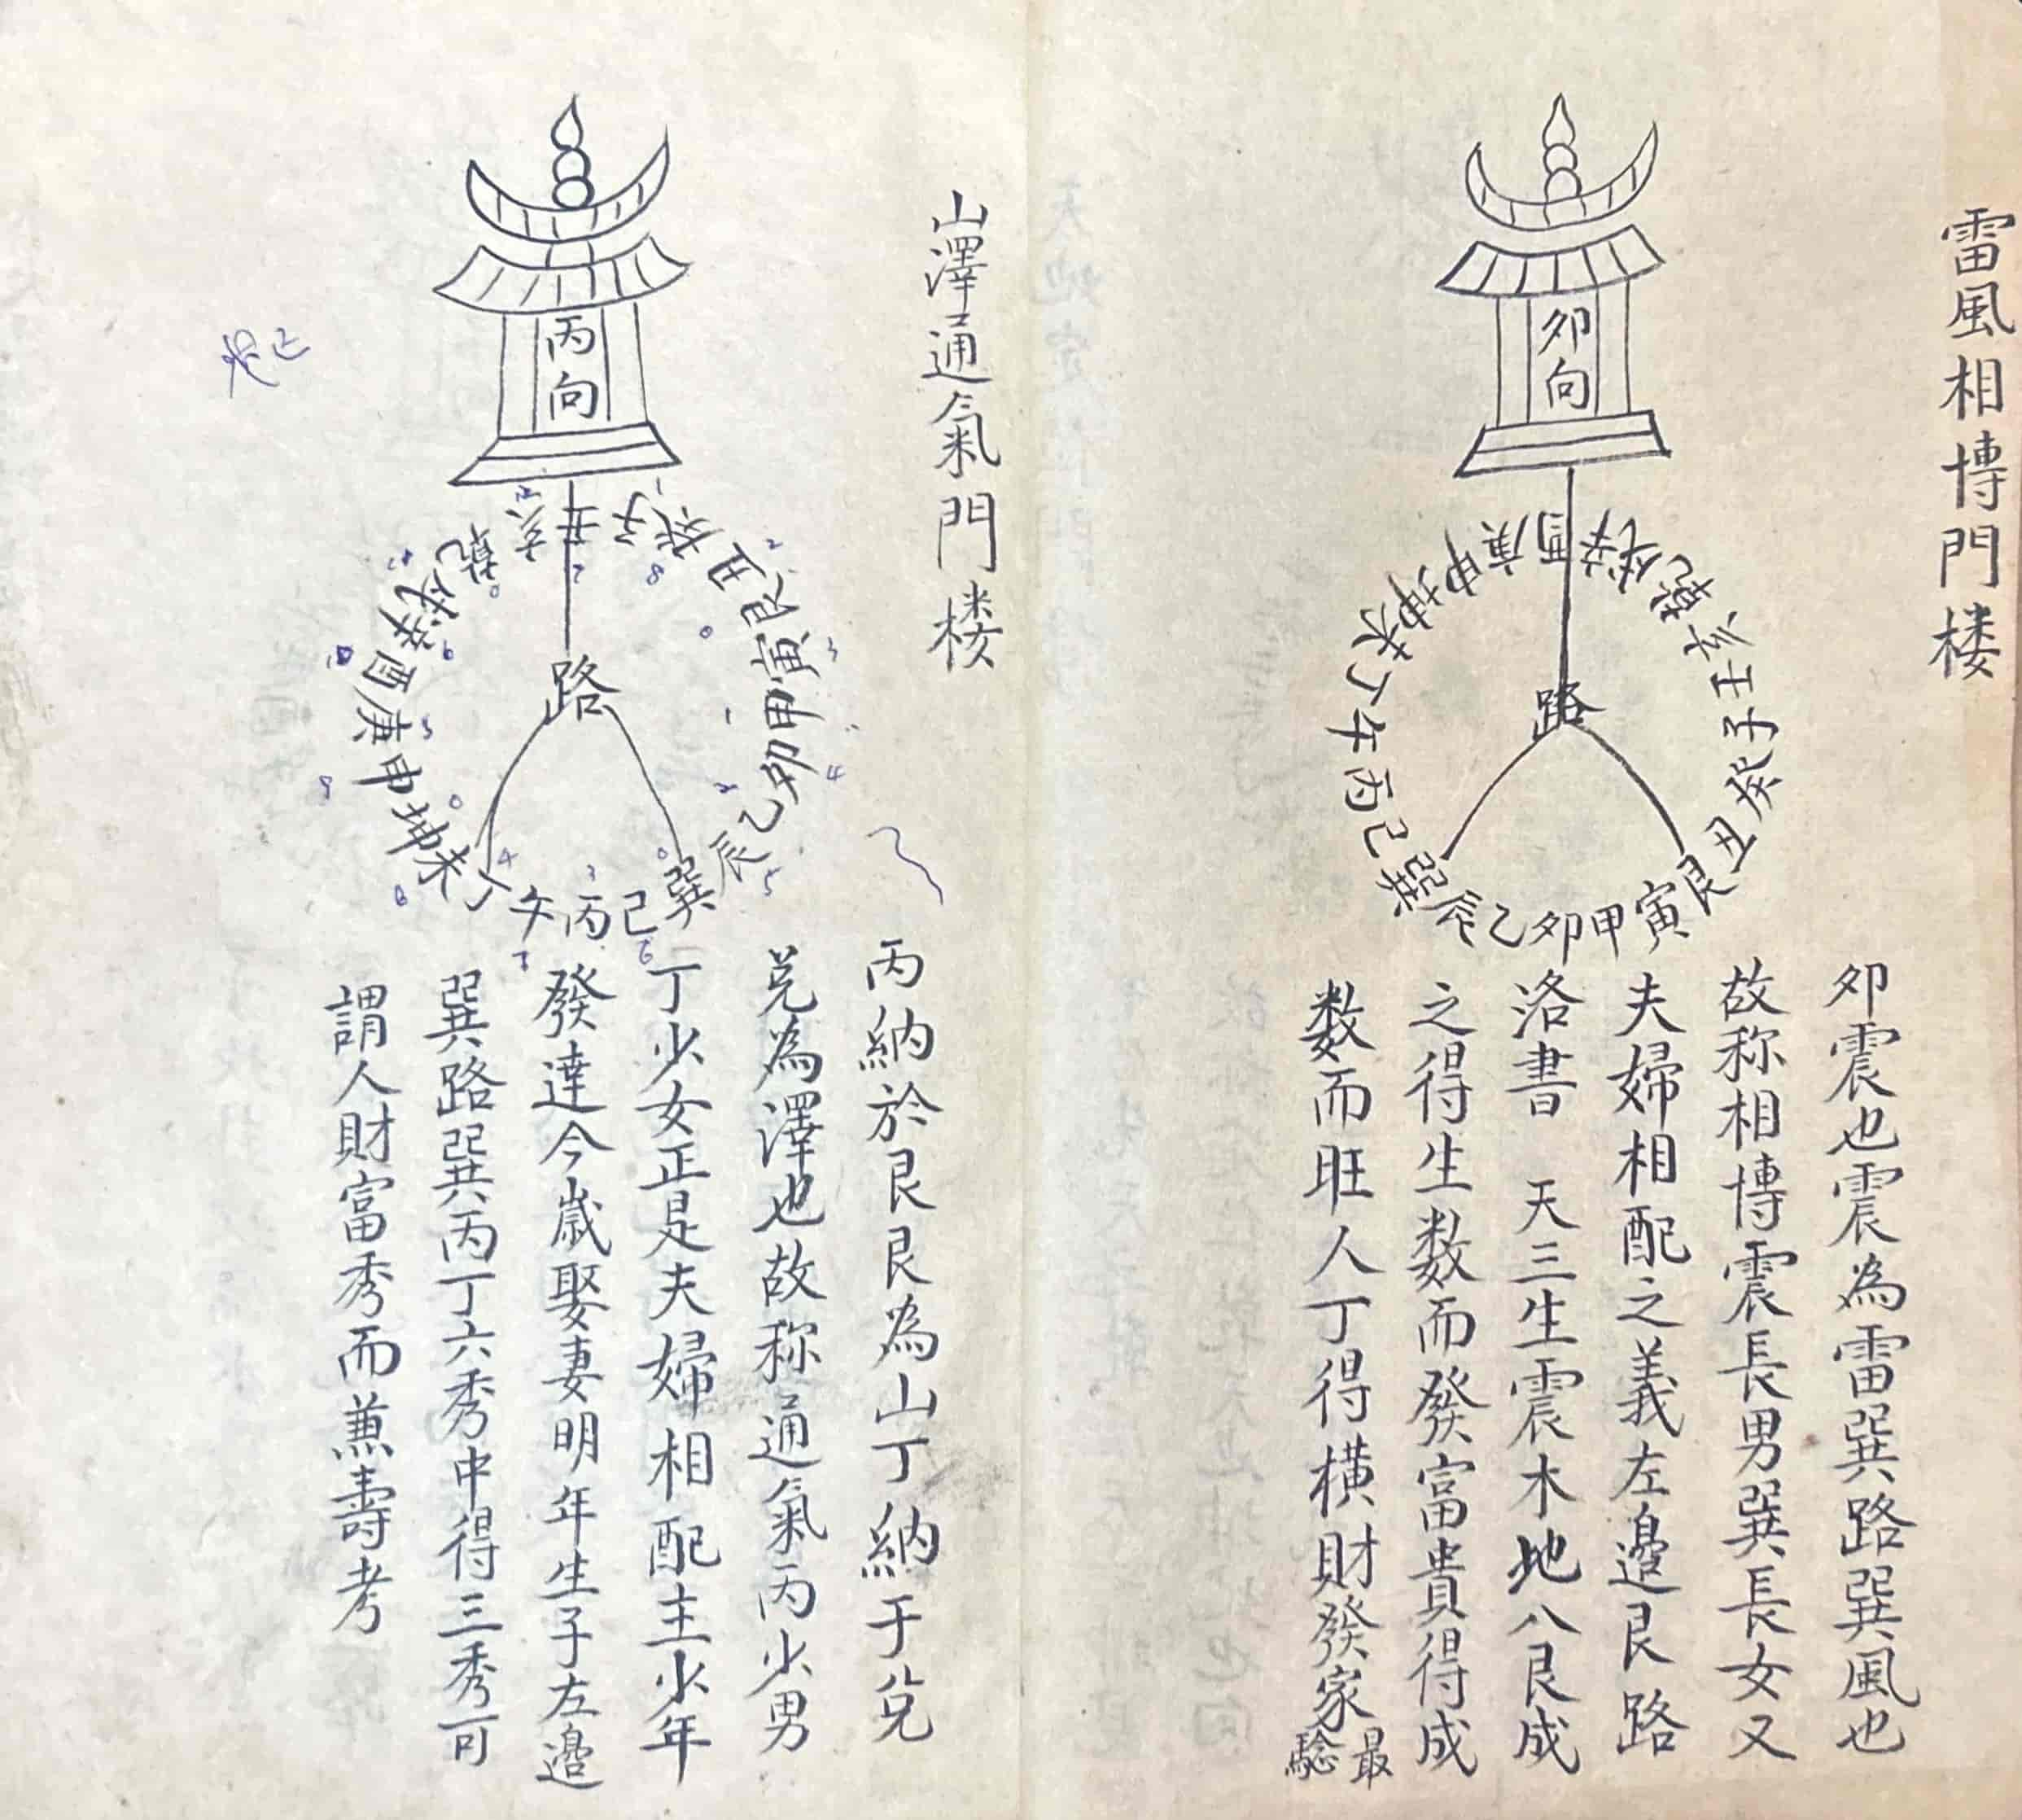 雷風相博門楼
卯向
路
卯甲寅艮丑癸子壬亥乾戌辛酉庚申坤未丁午丙巳巽辰乙
卯震也震為雷巽路巽風也
故称相博震長男巽長女又
夫婦相配之義左邉艮路
洛書　天三生震木地八艮成
之得生数而發富貴得成
数而旺人丁得横財發家最
驗
山澤通氣門楼
丙向
路
壬子癸丑艮寅甲卯乙辰巽巳丙午丁未坤申庚酉辛戌乾亥
丙納於艮艮為山丁納于兌
兌為澤也故称通氣丙少男
丁少女正是夫婦相配主少年
發達今歲娶妻明年生子左邉
巽路巽丙丁六秀中得三秀可
謂人財富秀而蒹壽考